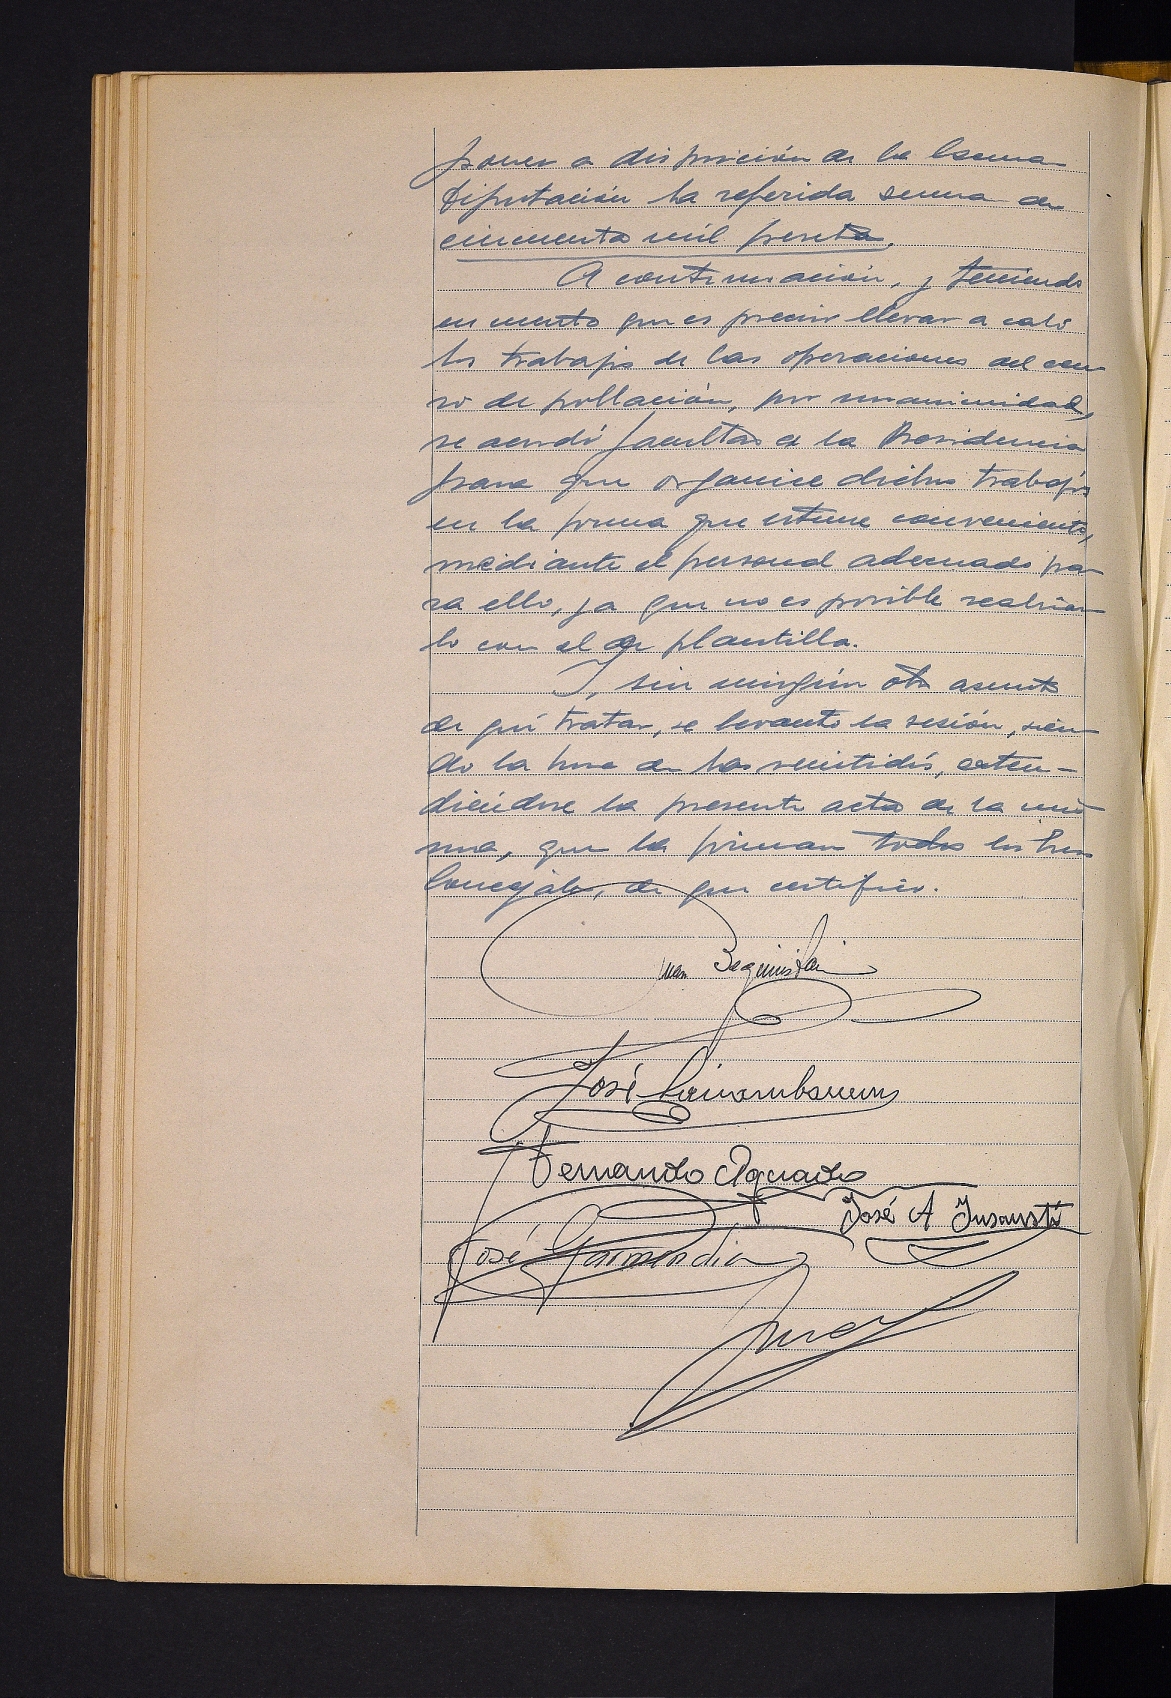 poner a disposición de la Excma
Diputación la referida suma de
cincuenta mil pesetas.
A continuación, y teniendo
en cuenta que es preciso llevar a cabo
los trabajos de las operaciones del cen-
so de población, por unanimidad,
se acordó facultar a la Presidencia
para que organice dichos trabajos
en la forma que estime conveniente,
mediante el personal adecuado pa-
ra ello, ya que no es posible realizar-
lo con el de plantilla.
Y, sin ningún otro asunto
de qué tratar, se levantó la sesión, sien-
do la hora de las veintidós, exten-
diéndose la presente acta de la mis-
ma, que la firman todos los Sres
Concejales, de que certifico.
Juan Beguiristain
José
Fernando Aguado
José A Insausti
José Garmendia